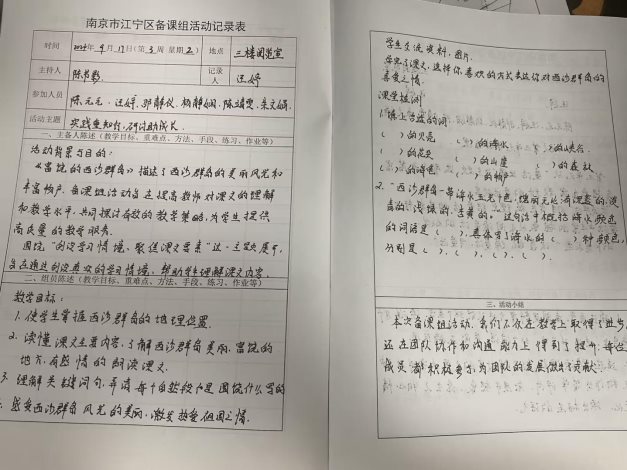 南京市江宁区备课组活动记录表
时间 2024年9月17日(第3周 星期2) 地点 三楼阅览室
主持人 陈书 记录人 汪婷
参加人员 陈元元、汪婷、
活动主题 实践重知行，研讨助成长
一、主备人陈述（教学目标、重难点、方法、手段、练习、作业等）
活动背景与目的：
《富饶的西沙群岛》描述了西沙群岛的美丽风光和
丰富物产。备课组活动旨在提高教师对课文的理解
和教学水平，共同探讨有效的教学策略，为学生提供
高质量的教学服务。
围绕“创设学习情境，聚焦课文要素”这一主题展开，
旨在通过创设真实的学习情境，帮助学生理解课文内容。
二、组员陈述（教学目标、重难点、方法、手段、练习、作业等）
教学目标：
1. 使学生掌握西沙群岛的地理位置。
2. 读懂课文主要内容，了解西沙群岛美丽、富饶的
地方，有感情的朗读课文。
3. 理解关键词句，弄清每个自然段是围绕什么写的
4. 感受西沙群岛风光的美丽，激发热爱祖国之情。
学生交流资料，图片。
学完了课文，选择你喜欢的方式表达你对西沙群岛的
喜爱之情。
课堂检测
1. 填上合适的词
（ ）的贝壳 （ ）的海水 （ ）的峡谷
（ ）的花 （ ）的山崖 （ ）的
（ ）的海龟 （ ）的物产
2. “西沙群岛一带海水五光十色，瑰丽无比：有深蓝的，淡
青的，浅绿的，杏黄的。”这句话中概括海水颜色
的词语是（ ），具体写了海水的（ ）种颜色，
分别是（ ），（ ），（ ），（ ）。
三、活动小结
本次备课组活动，我们不仅在教学上取得了进步，
还在团队协作和沟通能力上得到了提升，每位
成员都积极参与，为团队的发展做出了贡献